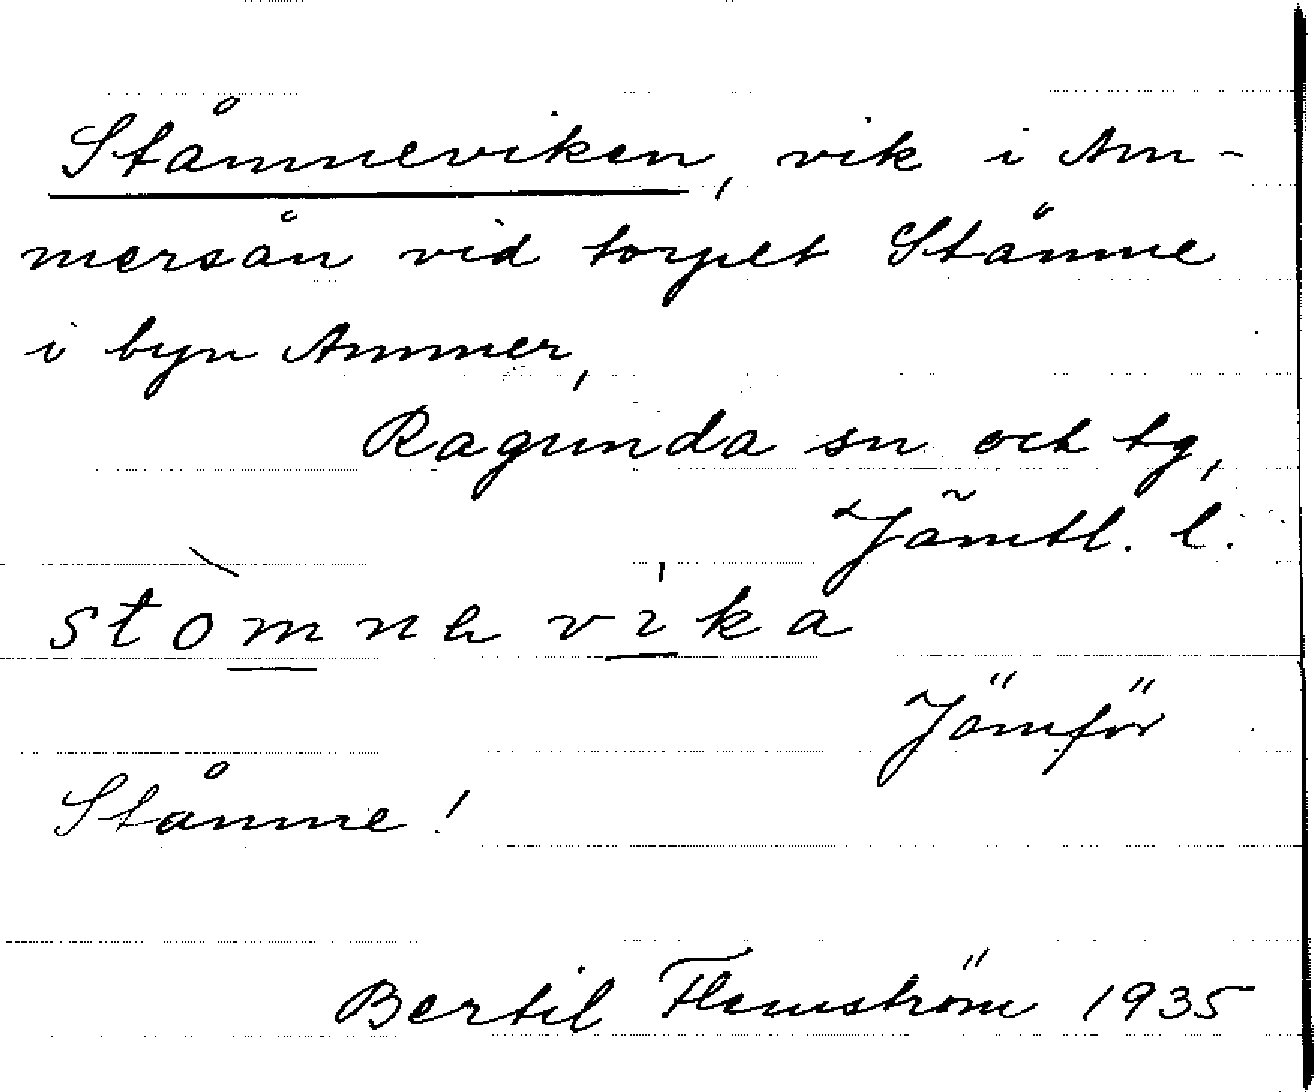 Ståmneviken, vik i Am-
mersån vid torpet Ståmne
i byn Ammer,
Ragunda sn och tg,
Jämtl. l.
stòmnə vi̍ka
Jämför
Ståmne!
Bertil Flemström 1935